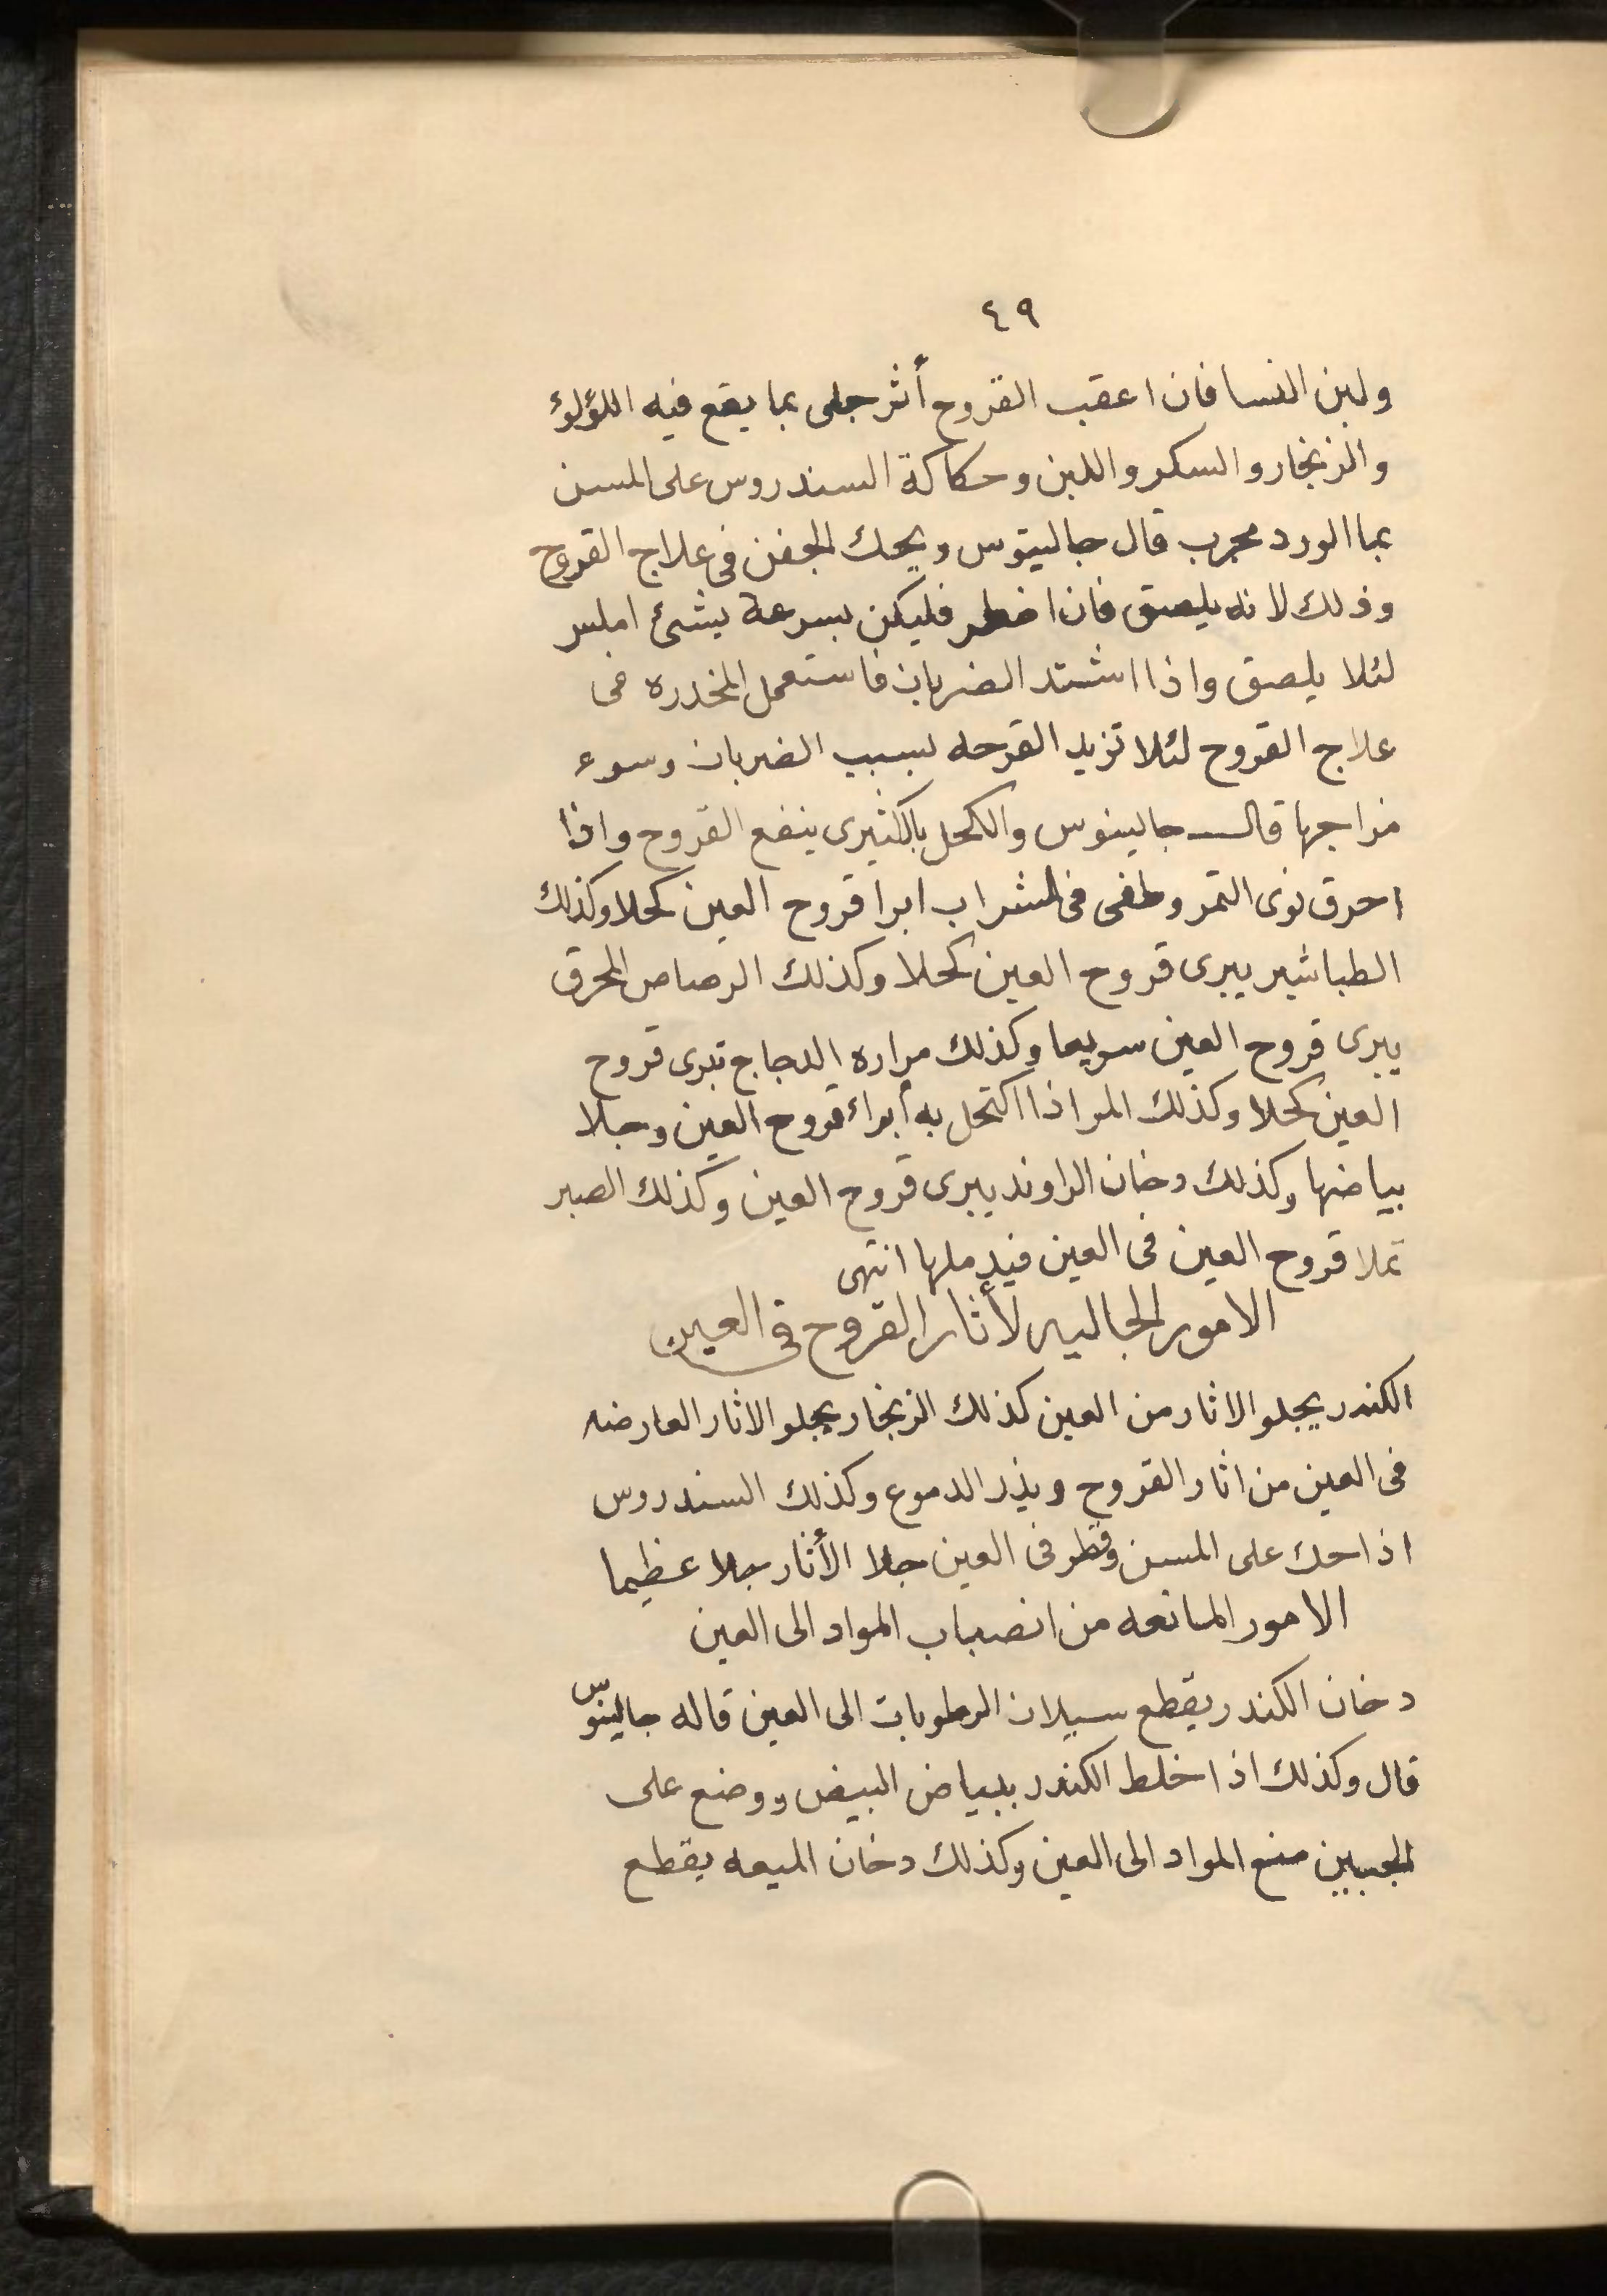 ٤٩
ولبن النسا فان اعقب القروح أثر جلى بما يقع فيه اللؤلؤ
والزنجار والسكر واللبن وحكاكة السندروس على المسن
بما الورد مجرب قال جالينوس ويحك الجفن فى علاج القروح
وذلك لانه يلصق فان اضطر فليكن بسرعة بشئ املس
لئلا يلصق واذا اشتد الضربان فاستعمل المخدره فى
علاج القروح لئلا تزيد القرحه لسبب الضربان وسوء
مزاجها قال جالينوس والكحل بالكثيرى ينفع القروح واذا
احرق نوى التمر وطفى فى الشراب ابرا قروح العين كحلا وكذلك
الطباشير يبرى قروح العين كحلا وكذلك الرصاص المحرق
يبرى قروح العين سريعا وكذلك مراره الدجاج تبرى قروح
العين كحلا وكذلك المر اذا اكتحل به أبراء قروح العين وجلا
بياضها وكذلك دخان الراوند يبرى قروح العين وكذلك الصبر
تملا قروح العين فى العين فيدملها انتهى
الامور الجاليه لأثار القروح فى العين
الكندر يجلو الاثار من العين كذلك الزنجار يجلو الاثار العارضه
فى العين من اثار القروح ويذر الدموع وكذلك السندروس
اذا حك على المسن وقطر فى العين جلا الأثار جلا عظيما
الامور المانعه من انصباب المواد الى العين
دخان الكندر يقطع سيلان الرطوبات الى العين قاله جالينوس
قال وكذلك اذا خلط الكندر ببياض البيض ووضع على
الجبين منع المواد الى العين وكذلك دخان الميعه يقطع